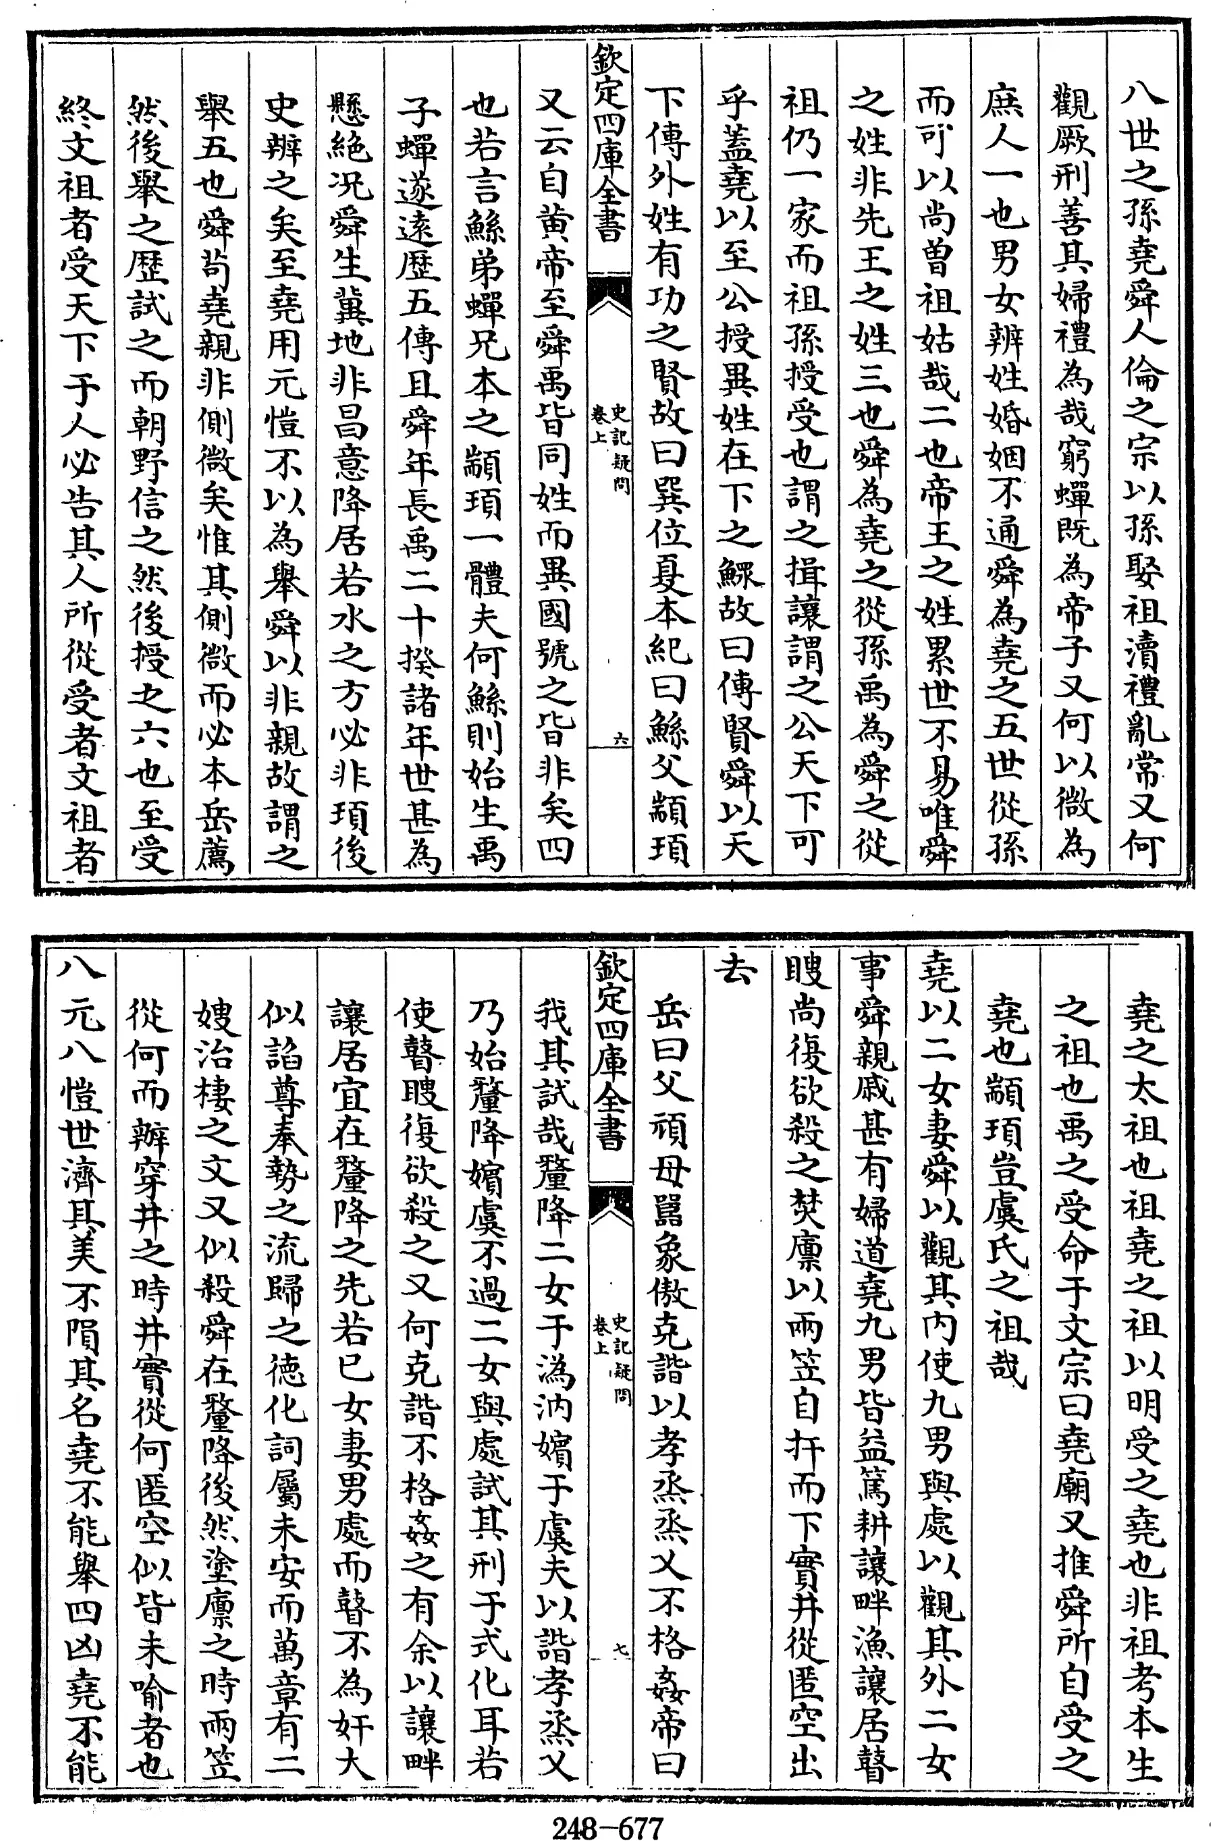 八世之孫堯舜人倫之宗以孫娶祖瀆禮亂常又何
觀厥刑善其婦禮為哉窮蟬既為帝子又何以微為
庶人一也男女辨姓婚姻不通舜為堯之五世從孫
而可以尚曽祖姑哉二也帝王之姓累世不易唯舜
之姓非先王之姓三也舜為堯之從孫禹為舜之從
祖仍一家而祖孫授受也謂之揖讓謂之公天下可
乎蓋堯以至公授異姓在下之鰥故曰傳賢舜以天
下傳外姓有功之賢故曰巽位夏本紀曰鯀父顓頊
欽定四庫全書
史記疑問
卷上
六
又云自黄帝至舜禹皆同姓而異國號之皆非矣四
也若言鯀弟蟬兄本之顓頊一體夫何鯀則始生禹
子蟬遂遠歴五傳且舜年長禹二十揆諸年世甚為
懸絶况舜生冀地非昌意降居若水之方必非頊後
史辨之矣至堯用元愷不以為舉舜以非親故謂之
舉五也舜茍堯親非側微矣惟其側微而必本岳薦
然後舉之歴試之而朝野信之然後授之六也至受
終文祖者受天下于人必告其人所從受者文祖者
堯之太祖也祖堯之祖以明受之堯也非祖考本生
之祖也禹之受命于文宗曰堯廟又推舜所自受之
堯也顓頊豈虞氏之祖哉
堯以二女妻舜以觀其内使九男與處以觀其外二女
事舜親戚甚有婦道堯九男皆益篤耕讓畔漁讓居瞽
瞍尚復欲殺之焚廪以兩笠自扞而下實井從匿空出
去
岳曰父頑母嚚象傲克諧以孝烝烝乂不格姦帝曰
欽定四庫全書
史記疑問
卷上
七
我其試哉釐降二女于溈汭嬪于虞夫以諧孝烝乂
乃始釐降嬪虞不過二女與處試其刑于式化耳若
使瞽瞍復欲殺之又何克諧不格姦之有余以讓畔
讓居宜在釐降之先若已女妻男處而瞽不為奸大
似諂尊奉勢之流歸之徳化詞屬未安而萬章有二
嫂治棲之文又似殺舜在釐降後然塗廪之時兩笠
從何而辦穿井之時井實從何匿空似皆未喻者也
八元八愷世濟其美不隕其名堯不能舉四凶堯不能
248-677